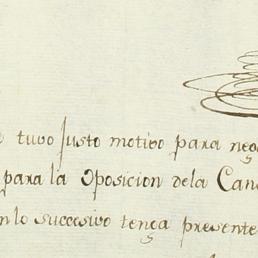 tuvo justo motivo para neg
para la Oposicion dela Can
nlo succesivo tenga presente